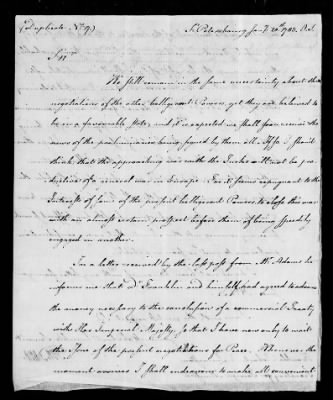 (Duplicate No. 9) St. Petersbourg Jany. 20th 1783. O.S.
Sir
We still remain in the same uncertainty about the
negotiations of the other belligerent Powers, yet they are believed to
be in a favourable state, and it is expected we shall soon receive the
news of the preliminaries being signed by them all. If so I should
think that the approaching war with the Turks will not be pro-
ductive of a general war in Europe. For it seems repugnant to the
Interests of some of the present belligerent Powers, to close this war
with an almost certain prospect before them of being speedily
engaged in another.
In a letter received by the last post from Mr. Adams he
informs me that Dr. Franklin and himself had agreed to advance
the money necessary to the conclusion of a commercial Treaty
with Her Imperial Majesty, so that I have now only to wait
the issue of the present negotiations for Peace. Whenever the
moment arrives I shall endeavour to make all convenient